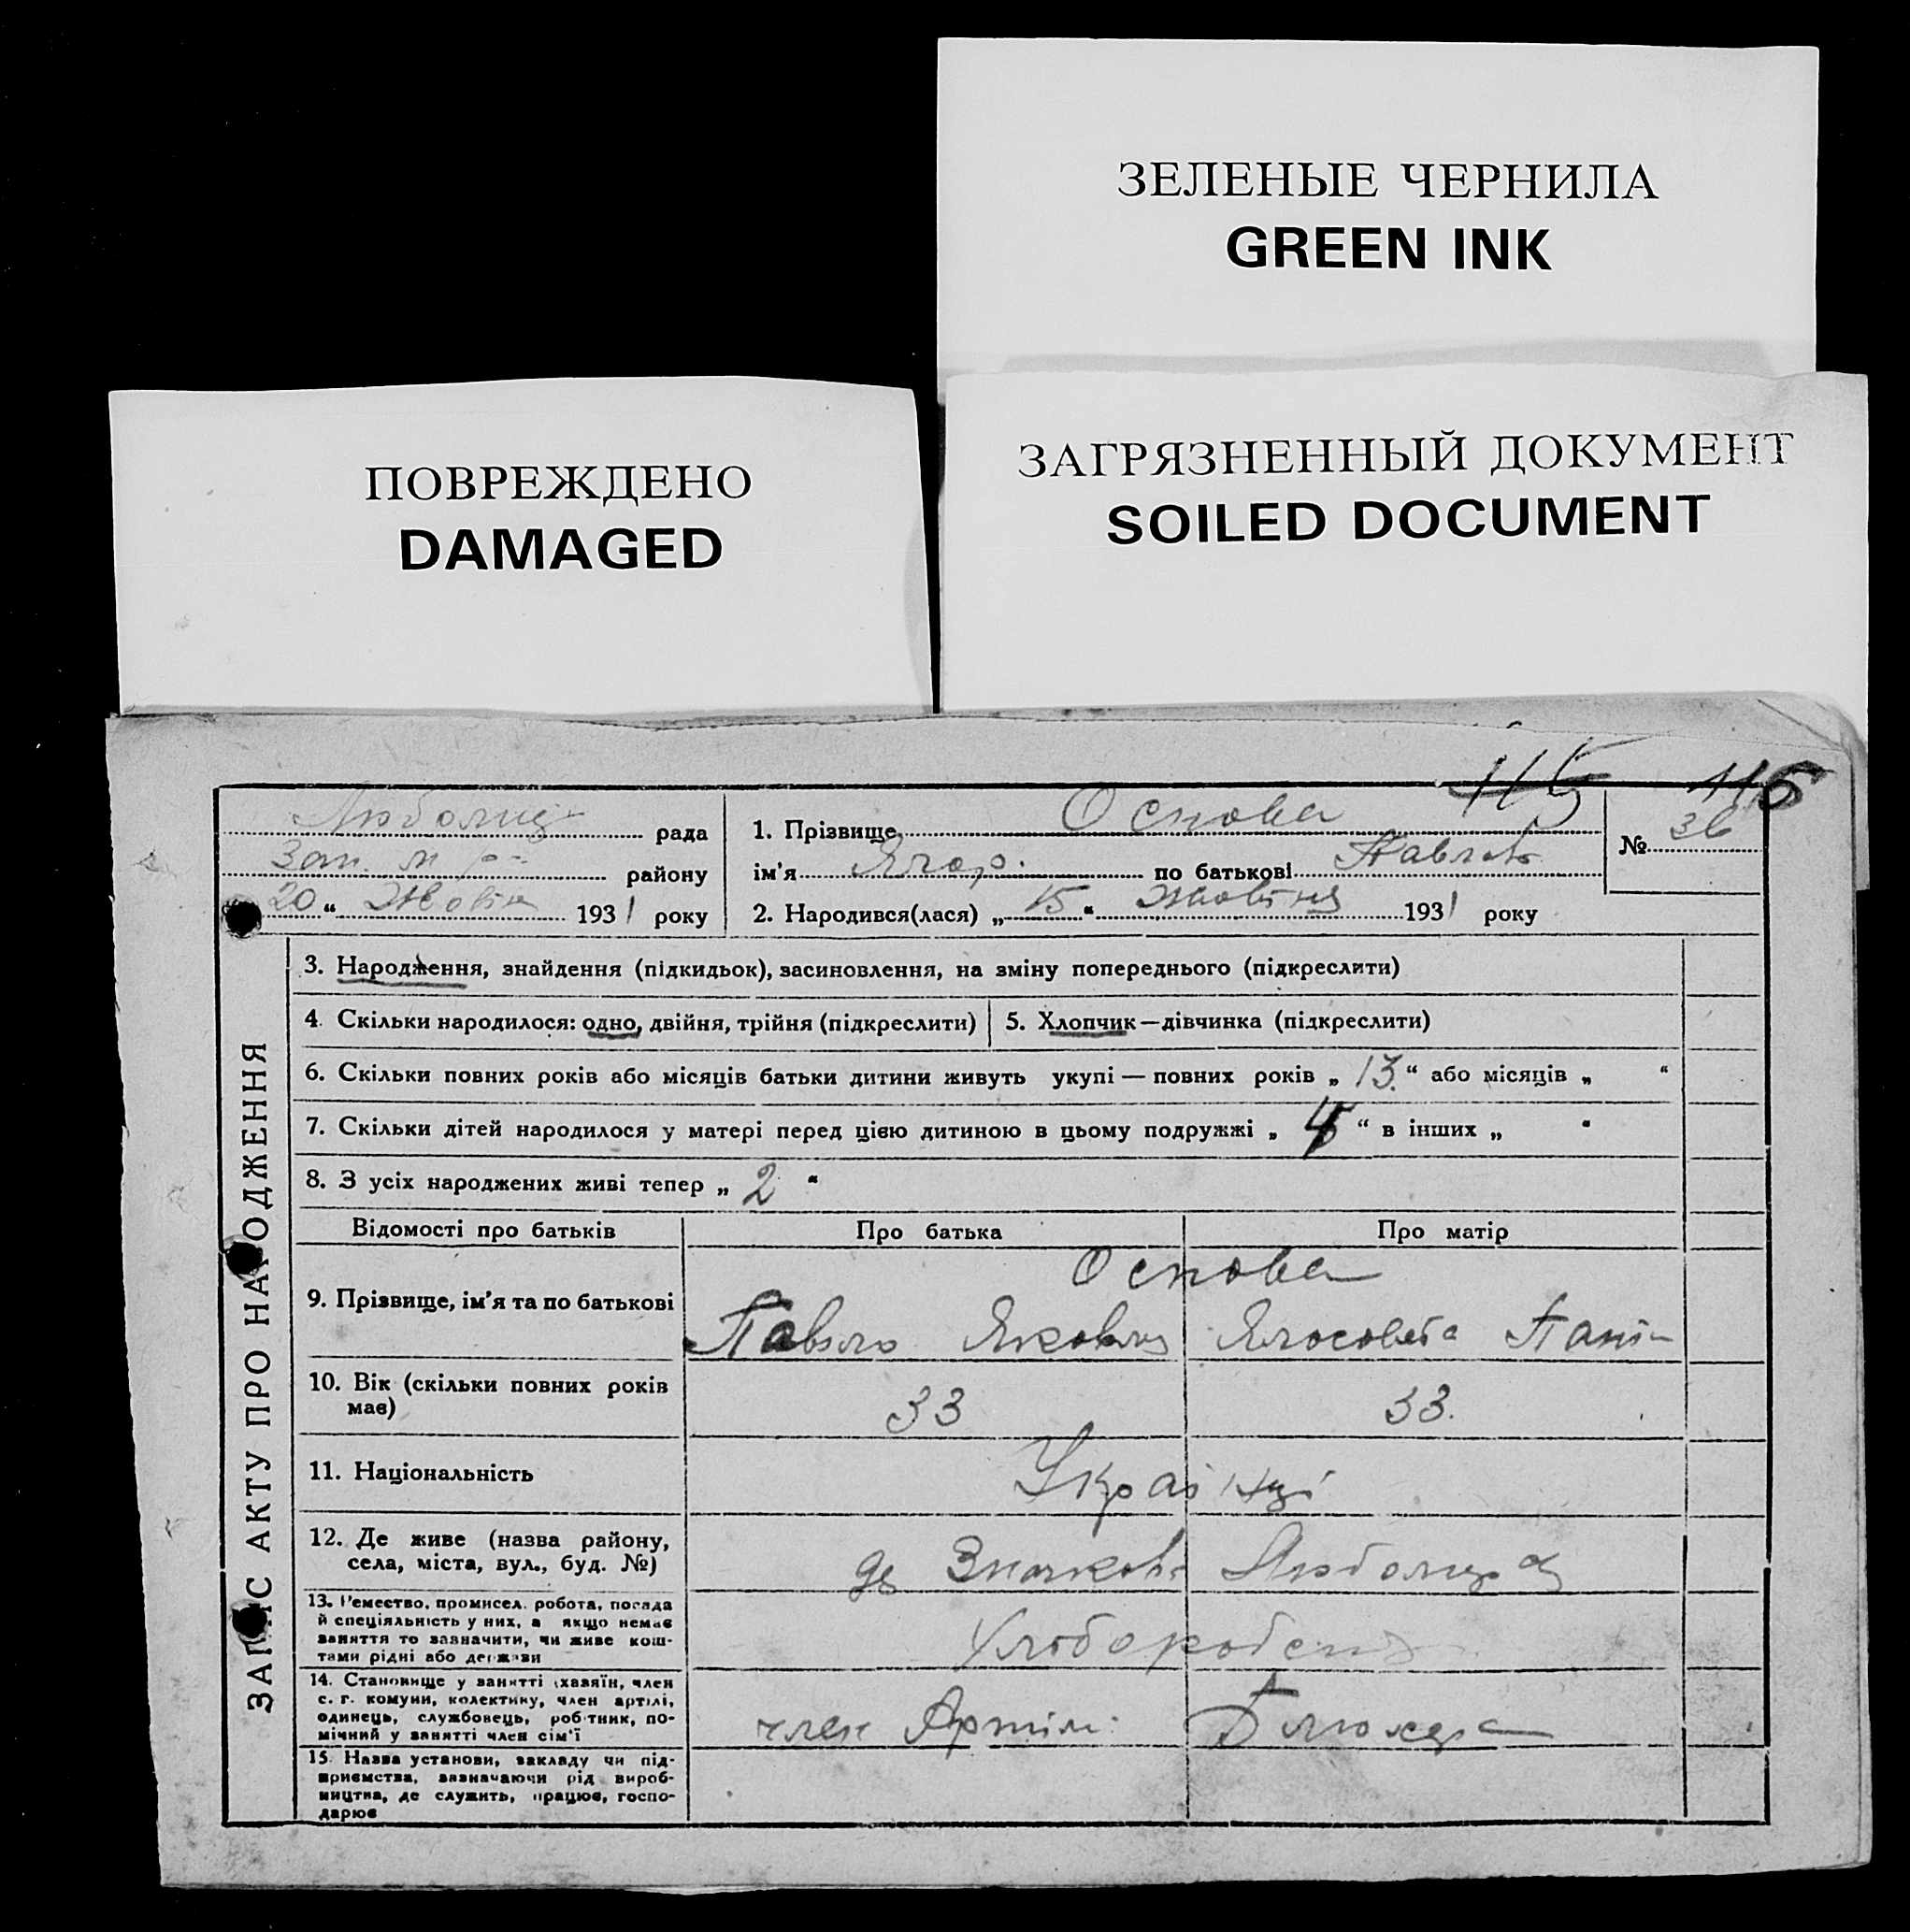 ЗЕЛЕНЫЕ ЧЕРНИЛА
GREEN INK
ПОВРЕЖДЕНО
DAMAGED
ЗАГРЯЗНЕННЫЙ ДОКУМЕНТ
SOILED DOCUMENT
115 116
рада
району
20 " Жовтня 1931 року
1. Прізвище Основа
ім'я по батькові Павлов
№ 36
2. Народився(лася) „ 15 " Жовтня 1931 року
ЗАПИС АКТУ ПРО НАРОДЖЕННЯ
3. Народження, знайдення (підкидьок), засиновлення, на зміну попереднього (підкреслити)
4. Скільки народилося: одно, двійня, трійня (підкреслити)
5. Хлопчик—дівчинка (підкреслити)
6. Скільки повних років або місяців батьки дитини живуть укупі — повних років „ 13. " або місяців „ "
7. Скільки дітей народилося у матері перед цією дитиною в цьому подружжі „ 4 " в інших „ "
8. З усіх народжених живі тепер „ 2 "
Відомості про батьків Про батька Про матір
Основа
9. Прізвище, ім'я та по батькові
Павло Якович
10. Вік (скільки повних років
має)
33 33.
11. Національність
Українці
12. Де живе (назва району,
села, міста, вул., буд. №)
13. Ремество, промисел, робота, посада
й спеціяльність у них, а якщо немає
заняття то зазначити, чи живе кош-
тами рідні або держави
Хлібороби
14. Становище у занятті (хазяїн, член
с. г. комуни, колективу, член артілі,
одинець, службовець, робітник, по-
мічний у занятті член сім'ї
член Артілі Блюхера
15. Назва установи, закладу чи під-
приємства, зазначаючи рід вироб-
ництва, де служить, працює, госпо-
дарює